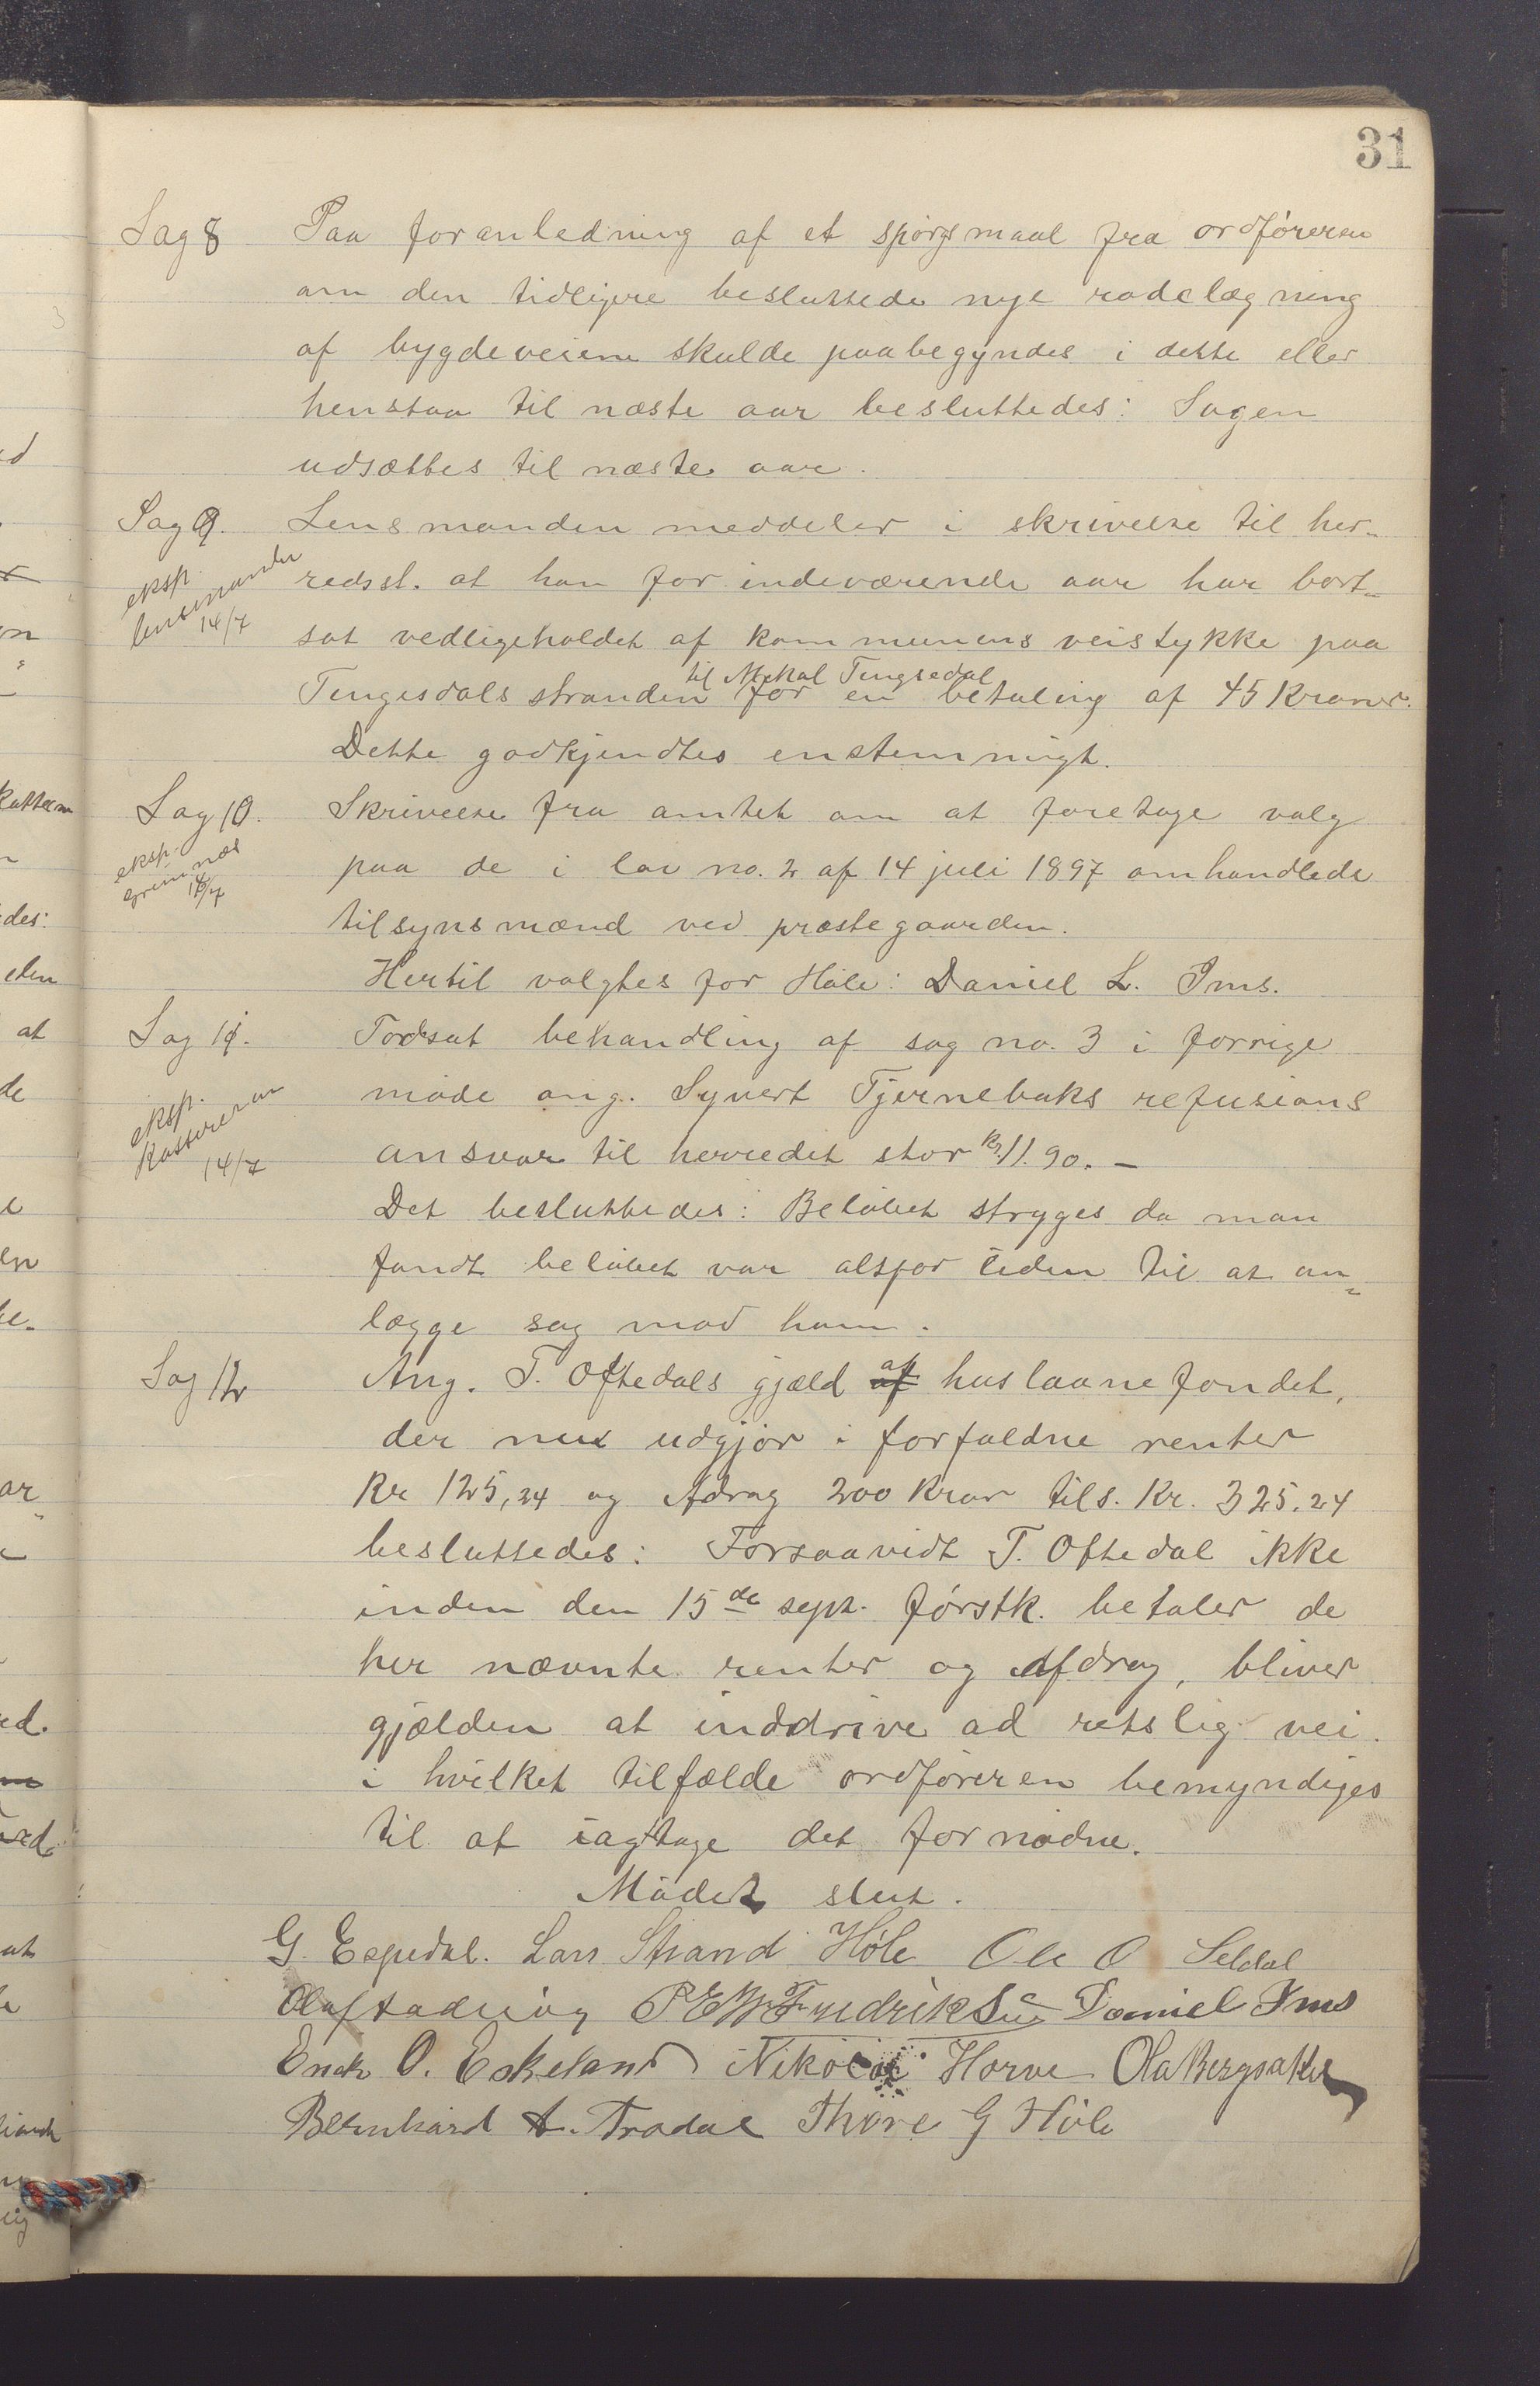 31
Sag 8 Paa foranledning af et spørgsmaal fra ordføreren
om den tidligere besluttede nye rodelægning
af bygdeveiene skulde paabegyndes i dette eller
henstaa til næste aar besluttedes: Sagen
udsættes til næste aar.
Sag 9. Lensmanden meddeler i skrivelse til her-
redsst. at han for indeværende aar har bort-
eksp.
lensmanden
14/7
sat vedligeholdet af kommunens veistykke paa
til Mikal Tengsedal
Tengesdalsstranden for en betaling af 45 Kroner.
Dette godkjendtes enstemmigt.
Sag 10. Skrivelse fra amtet om at foretage valg
eksp.
14/7
paa de i lov no. 2 af 14 juli 1897 omhandlede
tilsynsmænd ved præstegaarden.
Hertil valgtes for Høle: Daniel L. Ims.
Sag 11. Fodsat behandling af sag no. 3 i forrige
eksp.
Kassereren
14/7
møde ang. Syvert Tjernebaks refusions
ansvar til herredet stor kr. 11.90. –
Det besluttedes: Beløbet stryges da man
fandt beløbet var altfor liden til at an-
lægge sag mod ham.
Sag 12 Ang. T. Oftedals gjæld af huslaanefondet,
der nu udgjør i forfaldne renter
Kr 125,24 og Afdrag 200 Kroner tils. Kr. 325.24
besluttedes: Forsaavidt T. Oftedal ikke
inden den 15de sept. førstk. betaler de
her nævnte renter og Afdrag, bliver
gjælden at inddrive ad retslig vei.
i hvilket tilfælde ordføreren bemyndiges
til at iagttage det fornødne.
Mødet slut.
G. Espedal. Lars Strand Høle Ole O Seldal
Daniel Ims
O. Eskeland Nikolai Horve Ola Bergsaker
Bernhard A. Tradal Thore G Høle